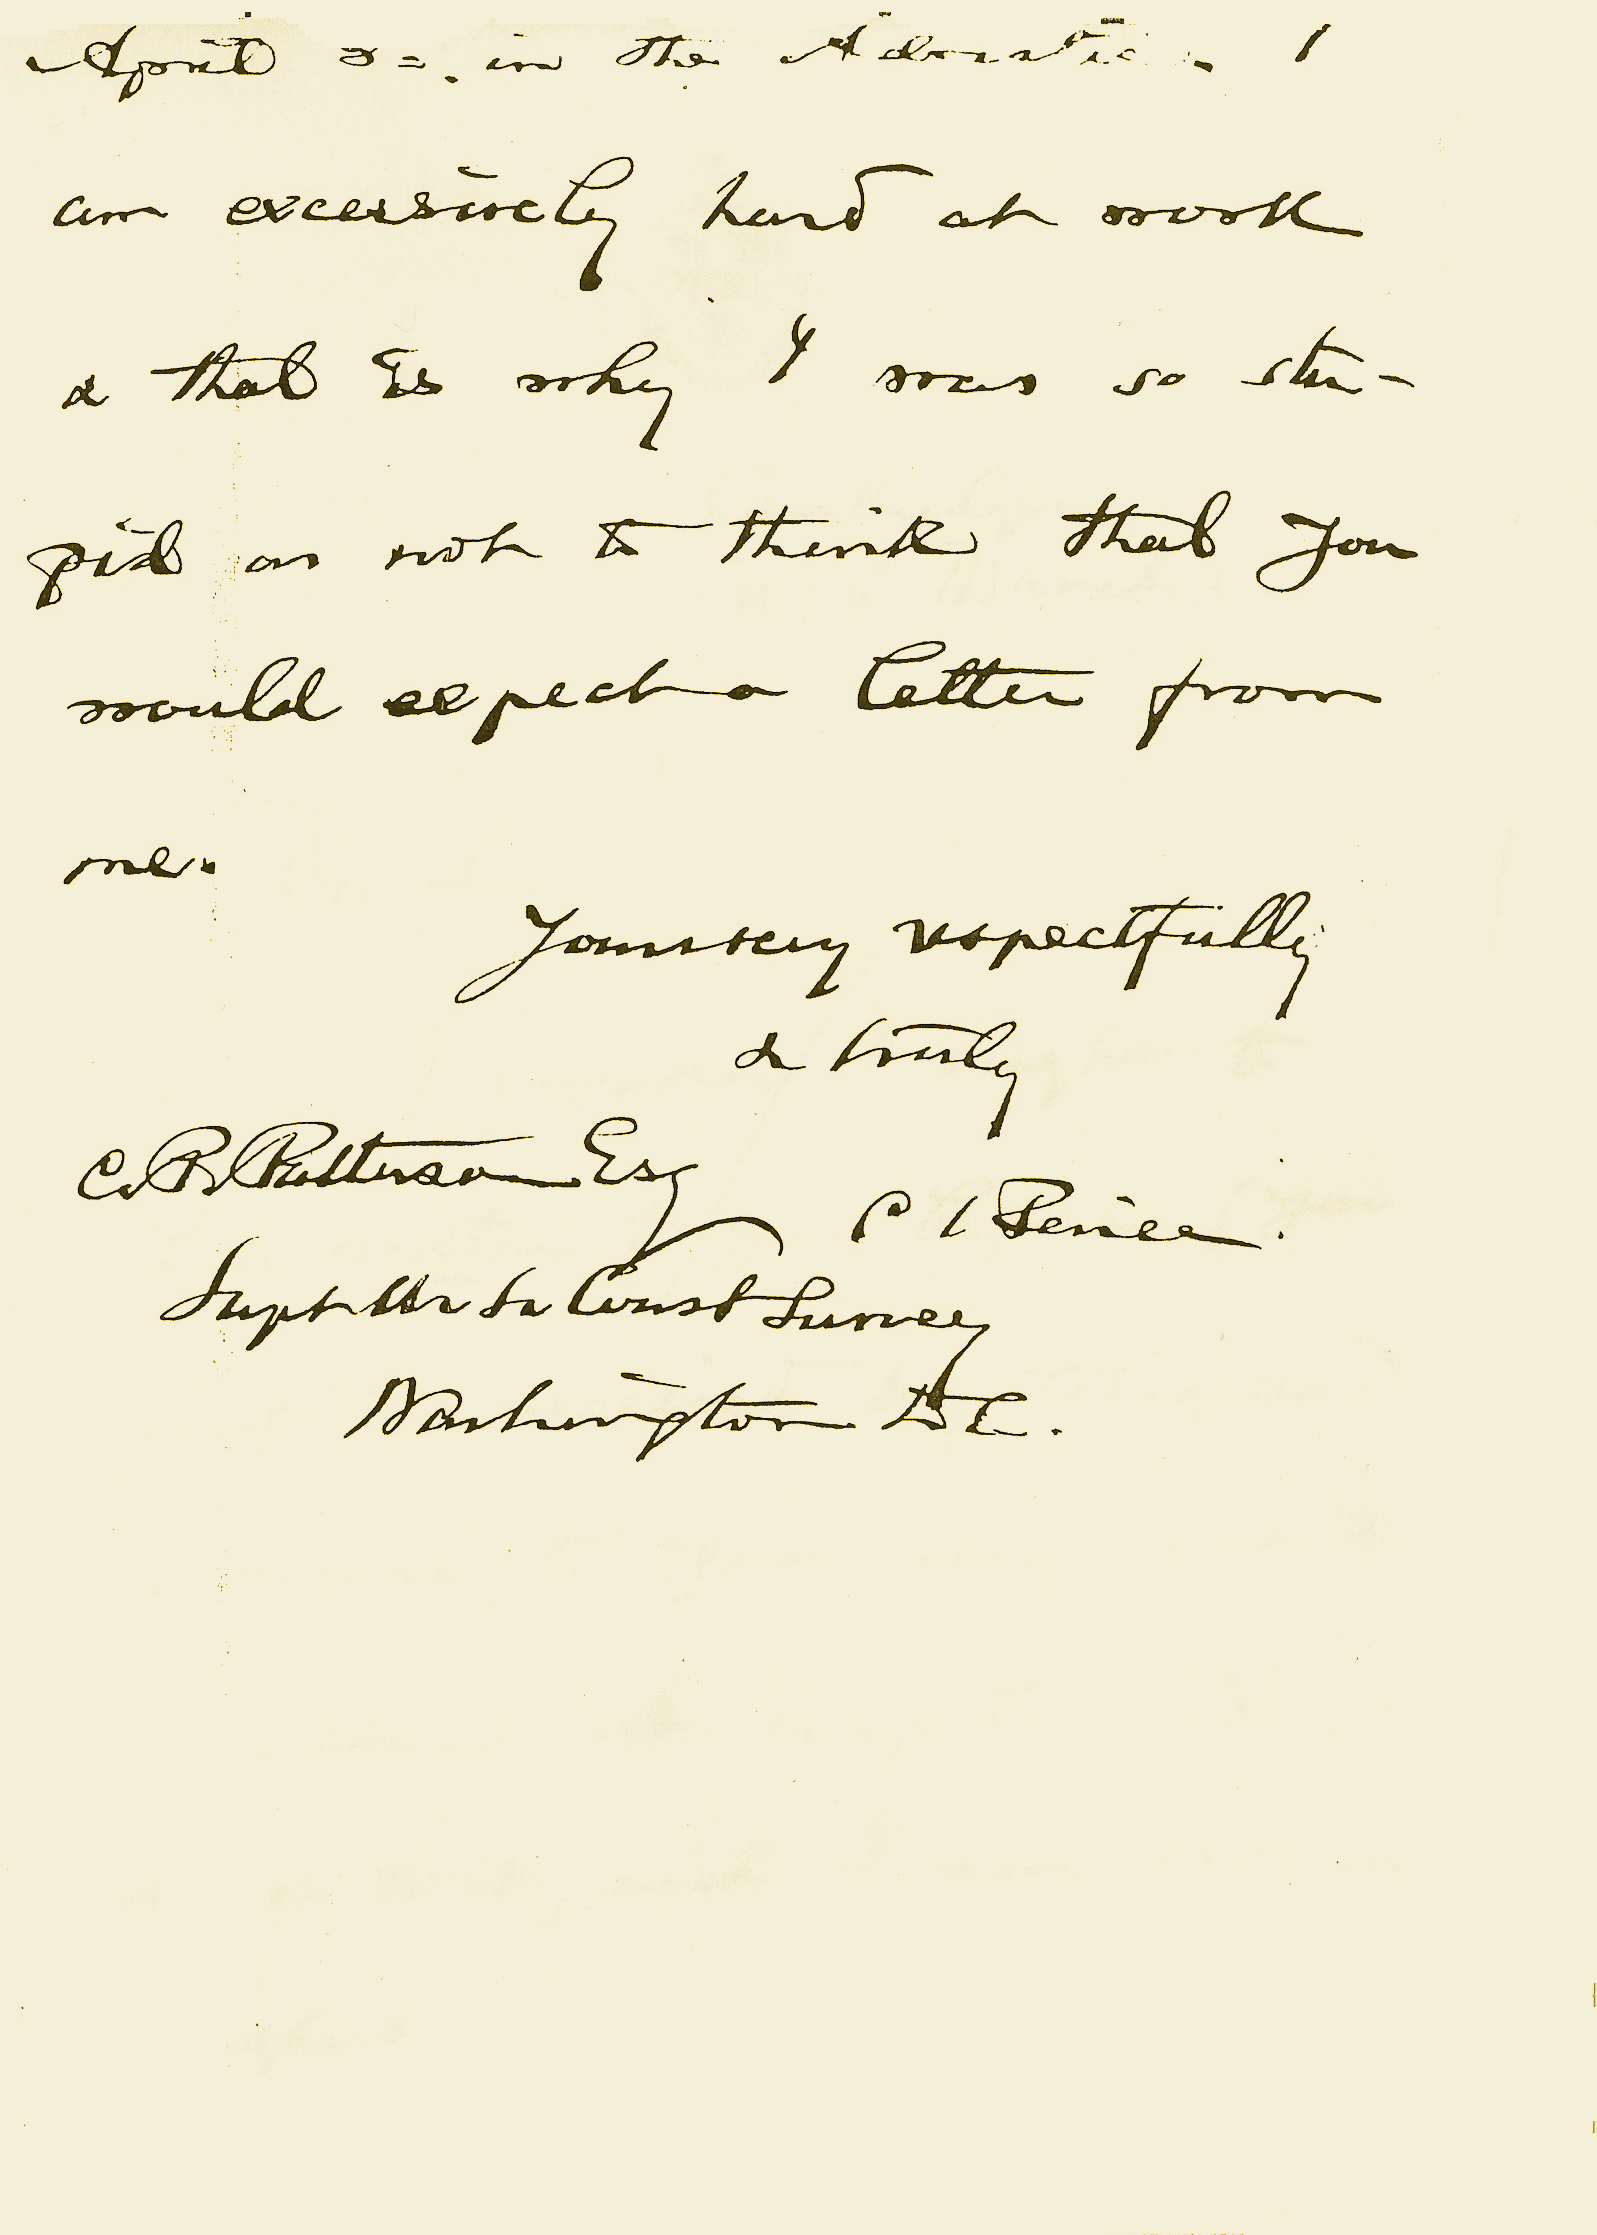 April in the Adriatic. I
am excessively hard at work
& that is why I was so stu-
pid as not to think that you
would expect a letter from
me.
Yours very respectfully
& truly
C. P. Patterson Esq
C S Peirce.
Supt U. S. Coast Survey
Washington D C.